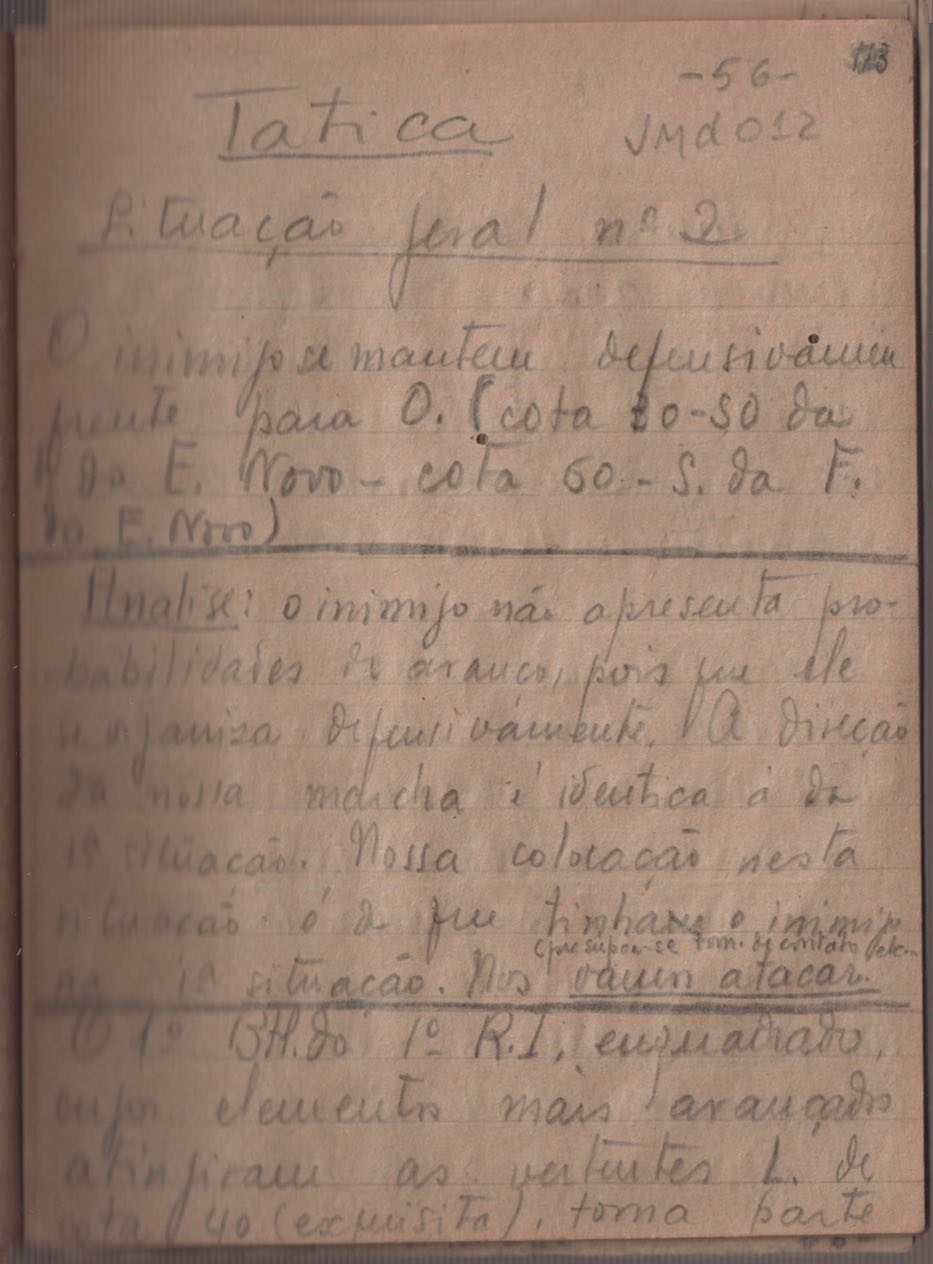 113
-56-
Tatica
JMd012
Situação geral nº 2
O inimigo se mantem defensivamen
frente para O. (cota 30-50 da
do E. Novo - cota 60 - S. da F.
do E. Novo)
Analise: o inimigo não apresenta pro-
babilidades de avanço, pois que ele
se organiza defensivamente. A direção
da nossa marcha é identica á da
1ª situação. Nossa colocação nesta
situação é a que tinhamos o inimigo
(presupõe-se tom. de contato etc.
na 1ª situação. Nos vamos atacar.
O 1º Btl. do 1º R.I, enquadrado,
cujos elementos mais avançados
atingiram as vertentes L. de
cota 40 (exquisita), toma parte